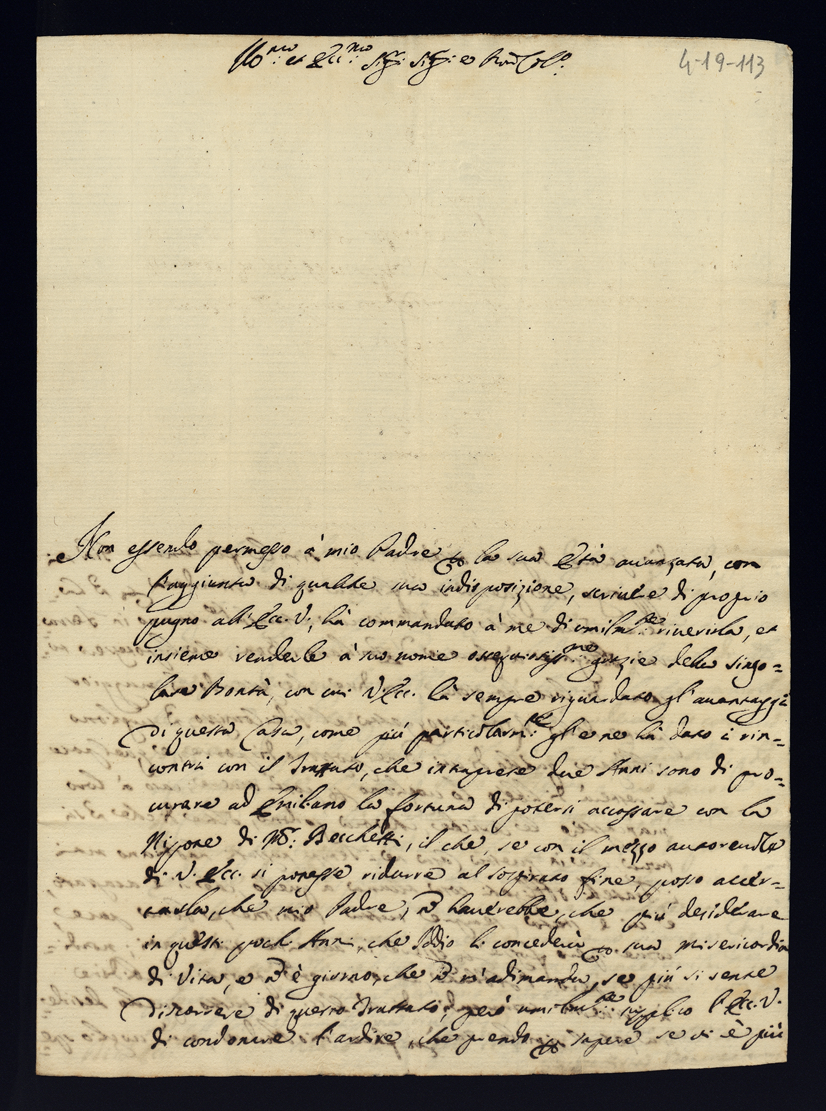 Ill.mo et Ecc.mo Sig.r Sig.r e Pron Col.o
4-19-113
Non essendo permesso à mio Padre p la sua Età avanzata, con
l'aggiunta di qualche sua indisposizione, scrivere di proprio
pugno all'Ecc. V., hà commandato à me di umilm.te riverirla, et
insieme renderle à suo nome ossequiosiss.me grazie della singo=
lare Bontà, con cui V. Ecc. hà sempre riguardato gl'avantaggi
di questa Casa, come più particolarm.te gl'e ne hà dato i rin=
contri con il Trattato, che intraprese due Anni sono di pro=
curare ad Emiliano la fortuna di potersi accasare con la
Nipote di M.r Becchetti, il che, se con il mezzo autorevole
di V. Ecc. si potesse ridurre al sospirato fine, posso accer=
tarla, che mio Padre, ñ haverebbe, che più desiderare
in questi pochi Anni, che Iddio li concederà p sua Misericordia
di Vita, e ñ è giorno, che ñ m'adimanda, se più si sente
discorrere di questo Trattato; però umilm.te supplico l'Ecc. V.
di condonare l'ardire, che prendo p sapere se vi è più